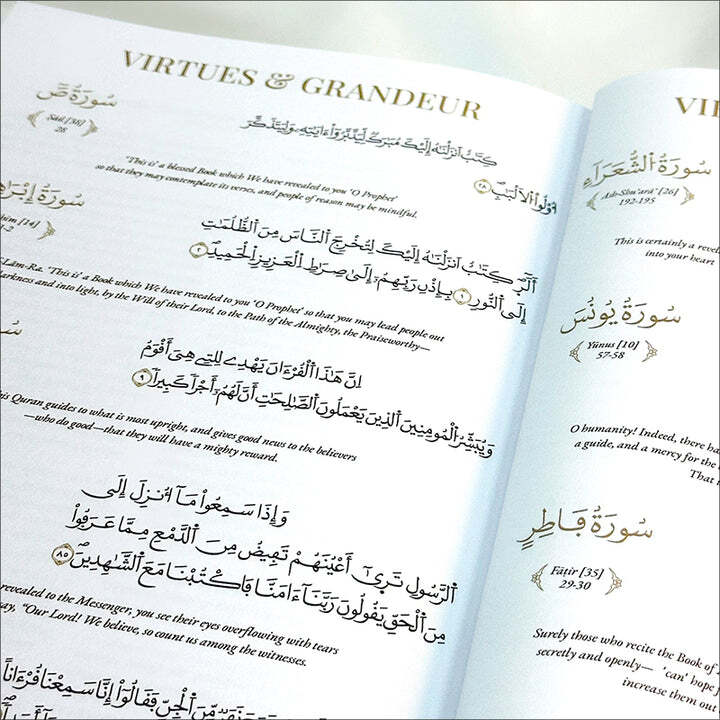 VIRTUES & GRANDEUR
سُورَةُ صٓ
Ṣãd [38]
28
كِتَٰبٌ اَنزَلْنَٰهُ إِلَيْكَ مُبَٰرَكٌ لِّيَدَّبَّرُوٓاْ ءَايَٰتِهِۦ وَلِيَتَذَكَّرَ
أُوْلُواْ اُلَالْبَٰبِۖ ٢٨
'This is' a blessed Book which We have revealed to you 'O Prophet'
so that they may contemplate its verses, and people of reason may be mindful.
سُورَةُ إِبْرَاهِ
him [14]
1-2
أَلَٓرۖ كِتَٰبٌ اَنزَلْنَٰهُ إِلَيْكَ لِتُخْرِجَ اَلنَّاسَ مِنَ اَلظُّلُمَٰتِ
إِلَى اَلنُّورِ ١ بِإِذْنِ رَبِّهِمُۥٓ إِلَىٰ صِرَٰطِ اِلْعَزِيزِ اِلْحَمِيدِۖ ٢
-Lãm-Ra. 'This is' a Book which We have revealed to you 'O Prophet' so that you may lead people out
darkness and into light, by the Will of their Lord, to the Path of the Almighty, the Praiseworthy—
اِنَّ هَٰذَا اَلْقُرْءَانَ يَهْدِے لِلتِے هِىَ أَقْوَمُ
وَيُبَشِّرُ اُلْمُومِنِينَ اَلذِينَ يَعْمَلُونَ اَلصَّٰلِحَٰتِ أَنَّ لَهُمُۥٓ أَجْراٗ كَبِيراٗ ٩
his Quran guides to what is most upright, and gives good news to the believers
—who do good—that they will have a mighty reward.
وَإِذَا سَمِعُواْ مَآ أُنزِلَ إِلَى
اَلرَّسُولِ تَرَىٰٓ أَعْيُنَهُمْ تَفِيضُ مِنَ اَلدَّمْعِ مِمَّا عَرَفُواْ
مِنَ اَلْحَقِّ يَقُولُونَ رَبَّنَآ ءَامَنَّا فَاكْتُبْنَا مَعَ اَلشَّٰهِدِينَۖ ٨٥
revealed to the Messenger, you see their eyes overflowing with tears
say, "Our Lord! We believe, so count us among the witnesses.
مِّنَ اَلْجِنِّ فَقَالُوٓاْ إِنَّا سَمِعْنَا قُرْءَاناً
VI
سُورَةُ الشُّعَرَاءِ
Ash-Shu'arã' [26]
192-195
This is certainly a revel
into your heart
سُورَةُ يُونُسَ
Yûnus [10]
57-58
O humanity! Indeed, there ha
a guide, and a mercy for the
That i
سُورَةُ فَاطِرٍ
Fâṭir [35]
29-30
Surely those who recite the Book of
secretly and openly— 'can' hope f
increase them out